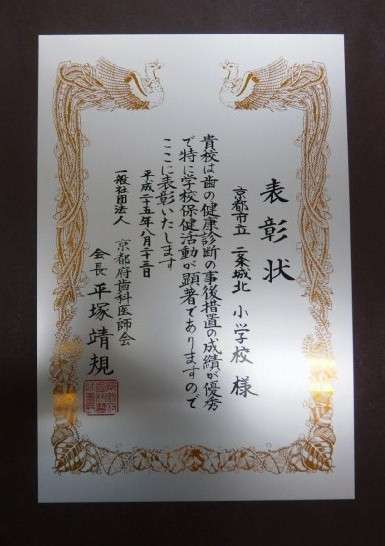 表彰状
京都市立 二条城北 小学校 様
貴校は歯の健康診断の事後措置の成績が優秀
で特に学校保健活動が顕著でありますので
ここに表彰いたします
平成二十五年八月二十三日
一般社団法人 京都府歯科医師会
会長 平塚靖規